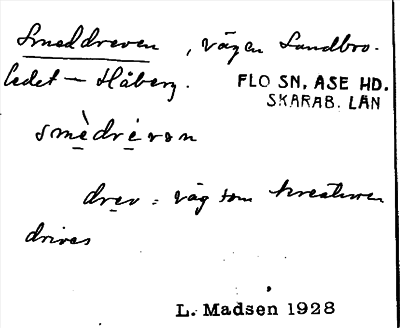 Smeddreven, vägen Sandbro-
ledet – Håberg.
FLO SN, ÅSE HD.
SKARAB. LÄN
smèdrévọn
drev = väg som kreaturen
drives
L. Madsen 1928